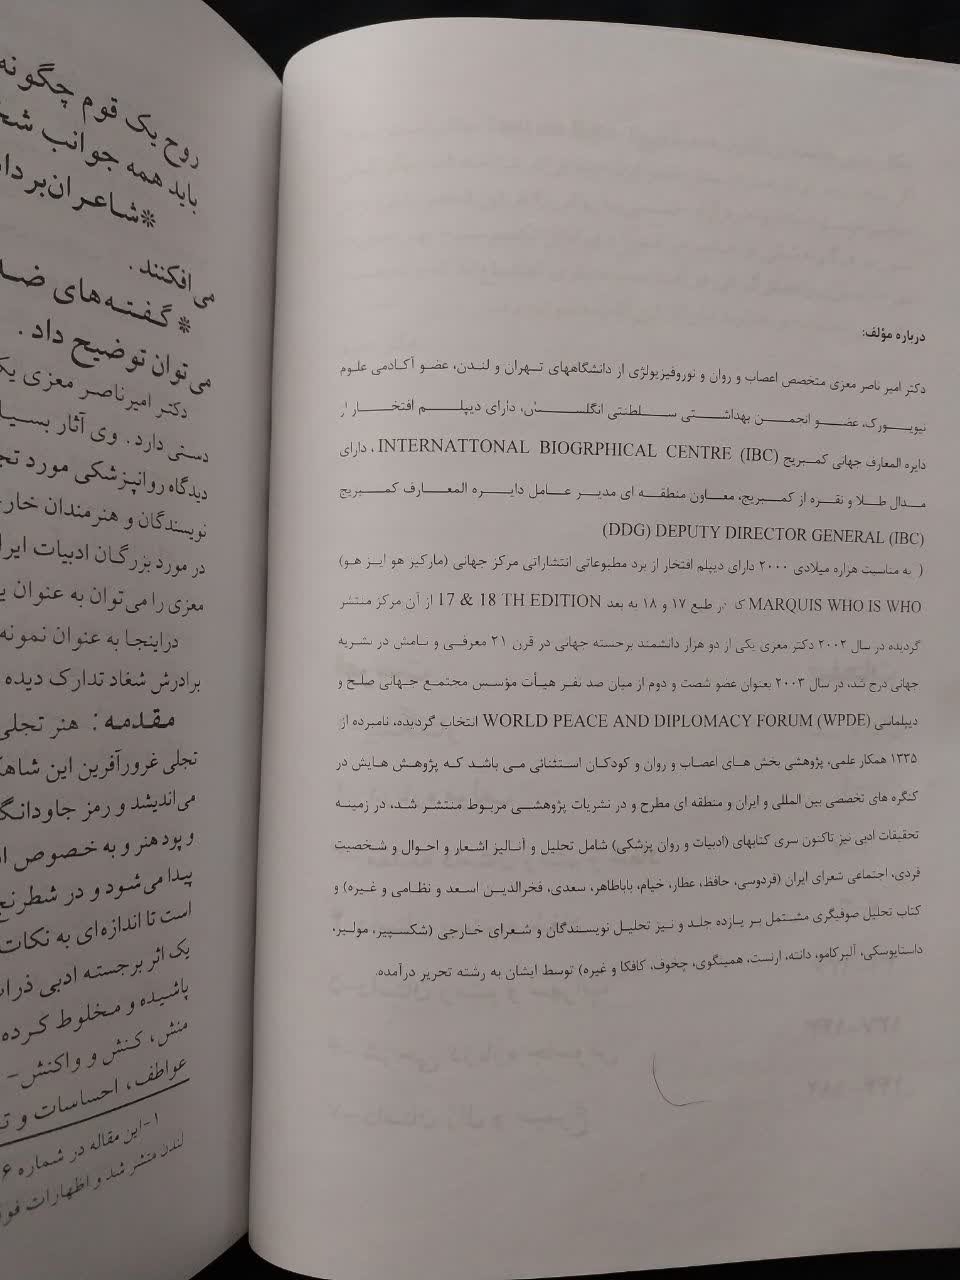 درباره مؤلف:
دکتر امیر ناصر معزی متخصص اعصاب و روان و نوروفیزیولژی از دانشگاههای تهران و لندن، عضو آکادمی علوم
نیویورک، عضو انجمن بهداشتی سلطنتی انگلستان، دارای دیپلم افتخار از
دایره المعارف جهانی کمبریج INTERNATTONAL BIOGRPHICAL CENTRE (IBC) ، دارای
مدال طلا و نقره از کمبریج، معاون منطقه ای مدیر عامل دایره المعارف کمبریج
(DDG) DEPUTY DIRECTOR GENERAL (IBC)
( به مناسبت هزاره میلادی ۲۰۰۰ دارای دیپلم افتخار از برد مطبوعاتی انتشاراتی مرکز جهانی (مارکیز هو ایز هو)
MARQUIS WHO IS WHO در طبع ۱۷ و ۱۸ به بعد 17 & 18 TH EDITION از آن مرکز منتشر
گردیده در سال ۲۰۰۲ دکتر معزی یکی از دو هزار دانشمند برجسته جهانی در قرن ۲۱ معرفی و نامش در نشریه
جهانی درج شد، در سال ۲۰۰۳ بعنوان عضو شصت و دوم از میان صد نفر هیأت مؤسس مجتمع جهانی صلح و
دیپلماسی WORLD PEACE AND DIPLOMACY FORUM (WPDE) انتخاب گردیده، نامبرده از
۱۳۳۵ همکار علمی، پژوهشی بخش های اعصاب و روان و کودکان استثنائی می باشد که پژوهش هایش در
کنگره های تخصصی بین المللی و ایران و منطقه ای مطرح و در نشریات پژوهشی مربوط منتشر شد، در زمینه
تحقیقات ادبی نیز تاکنون سری کتابهای (ادبیات و روان پزشکی) شامل تحلیل و آنالیز اشعار و احوال و شخصیت
فردی، اجتماعی شعرای ایران (فردوسی، حافظ، عطار، خیام، باباطاهر، سعدی، فخرالدین اسعد و نظامی و غیره) و
کتاب تحلیل صوفیگری مشتمل بر یازده جلد و نیز تحلیل نویسندگان و شعرای خارجی (شکسپیر، مولیر،
داستایوسکی، آلبرکامو، دانته، ارنست، همینگوی، چخوف، کافکا و غیره) توسط ایشان به رشته تحریر درآمده.
روح یک قوم چگونه
باید همه جوانب
*شاعران
می افکنند.
* گفته‌های
می توان توضیح داد.
دکتر امیرناصر معزی
دستی دارد. وی آثار
دیدگاه روانپزشکی مورد
نویسندگان و هنرمندان
در مورد بزرگان ادبیات
معزی را می‌توان به عنوان
دراینجا به عنوان نمونه
برادرش شغاد تدارک دیده
مقدمه: هنر تجلی
تجلی غرورآفرین این
می‌اندیشد و رمز
و پود هنر و به خصوص
پیدا می‌شود و در
است تا اندازه‌ای به نکات
یک اثر برجسته ادبی
پاشیده و مخلوط کرده
منش، کنش و واکنش-
عواطف، احساسات و
۱-این مقاله در شماره ۶
لندن منتشر شد و اظهارات